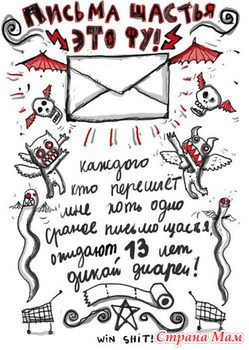 ПИСЬМА ЩАСТЬЯ
ЭТО ФУ!
каждого
кто перешлёт
мне хоть одно
сраное письмо щастя
ожидают 13 лет
дикой диареи!
WIN SHiT!
Страна Мам